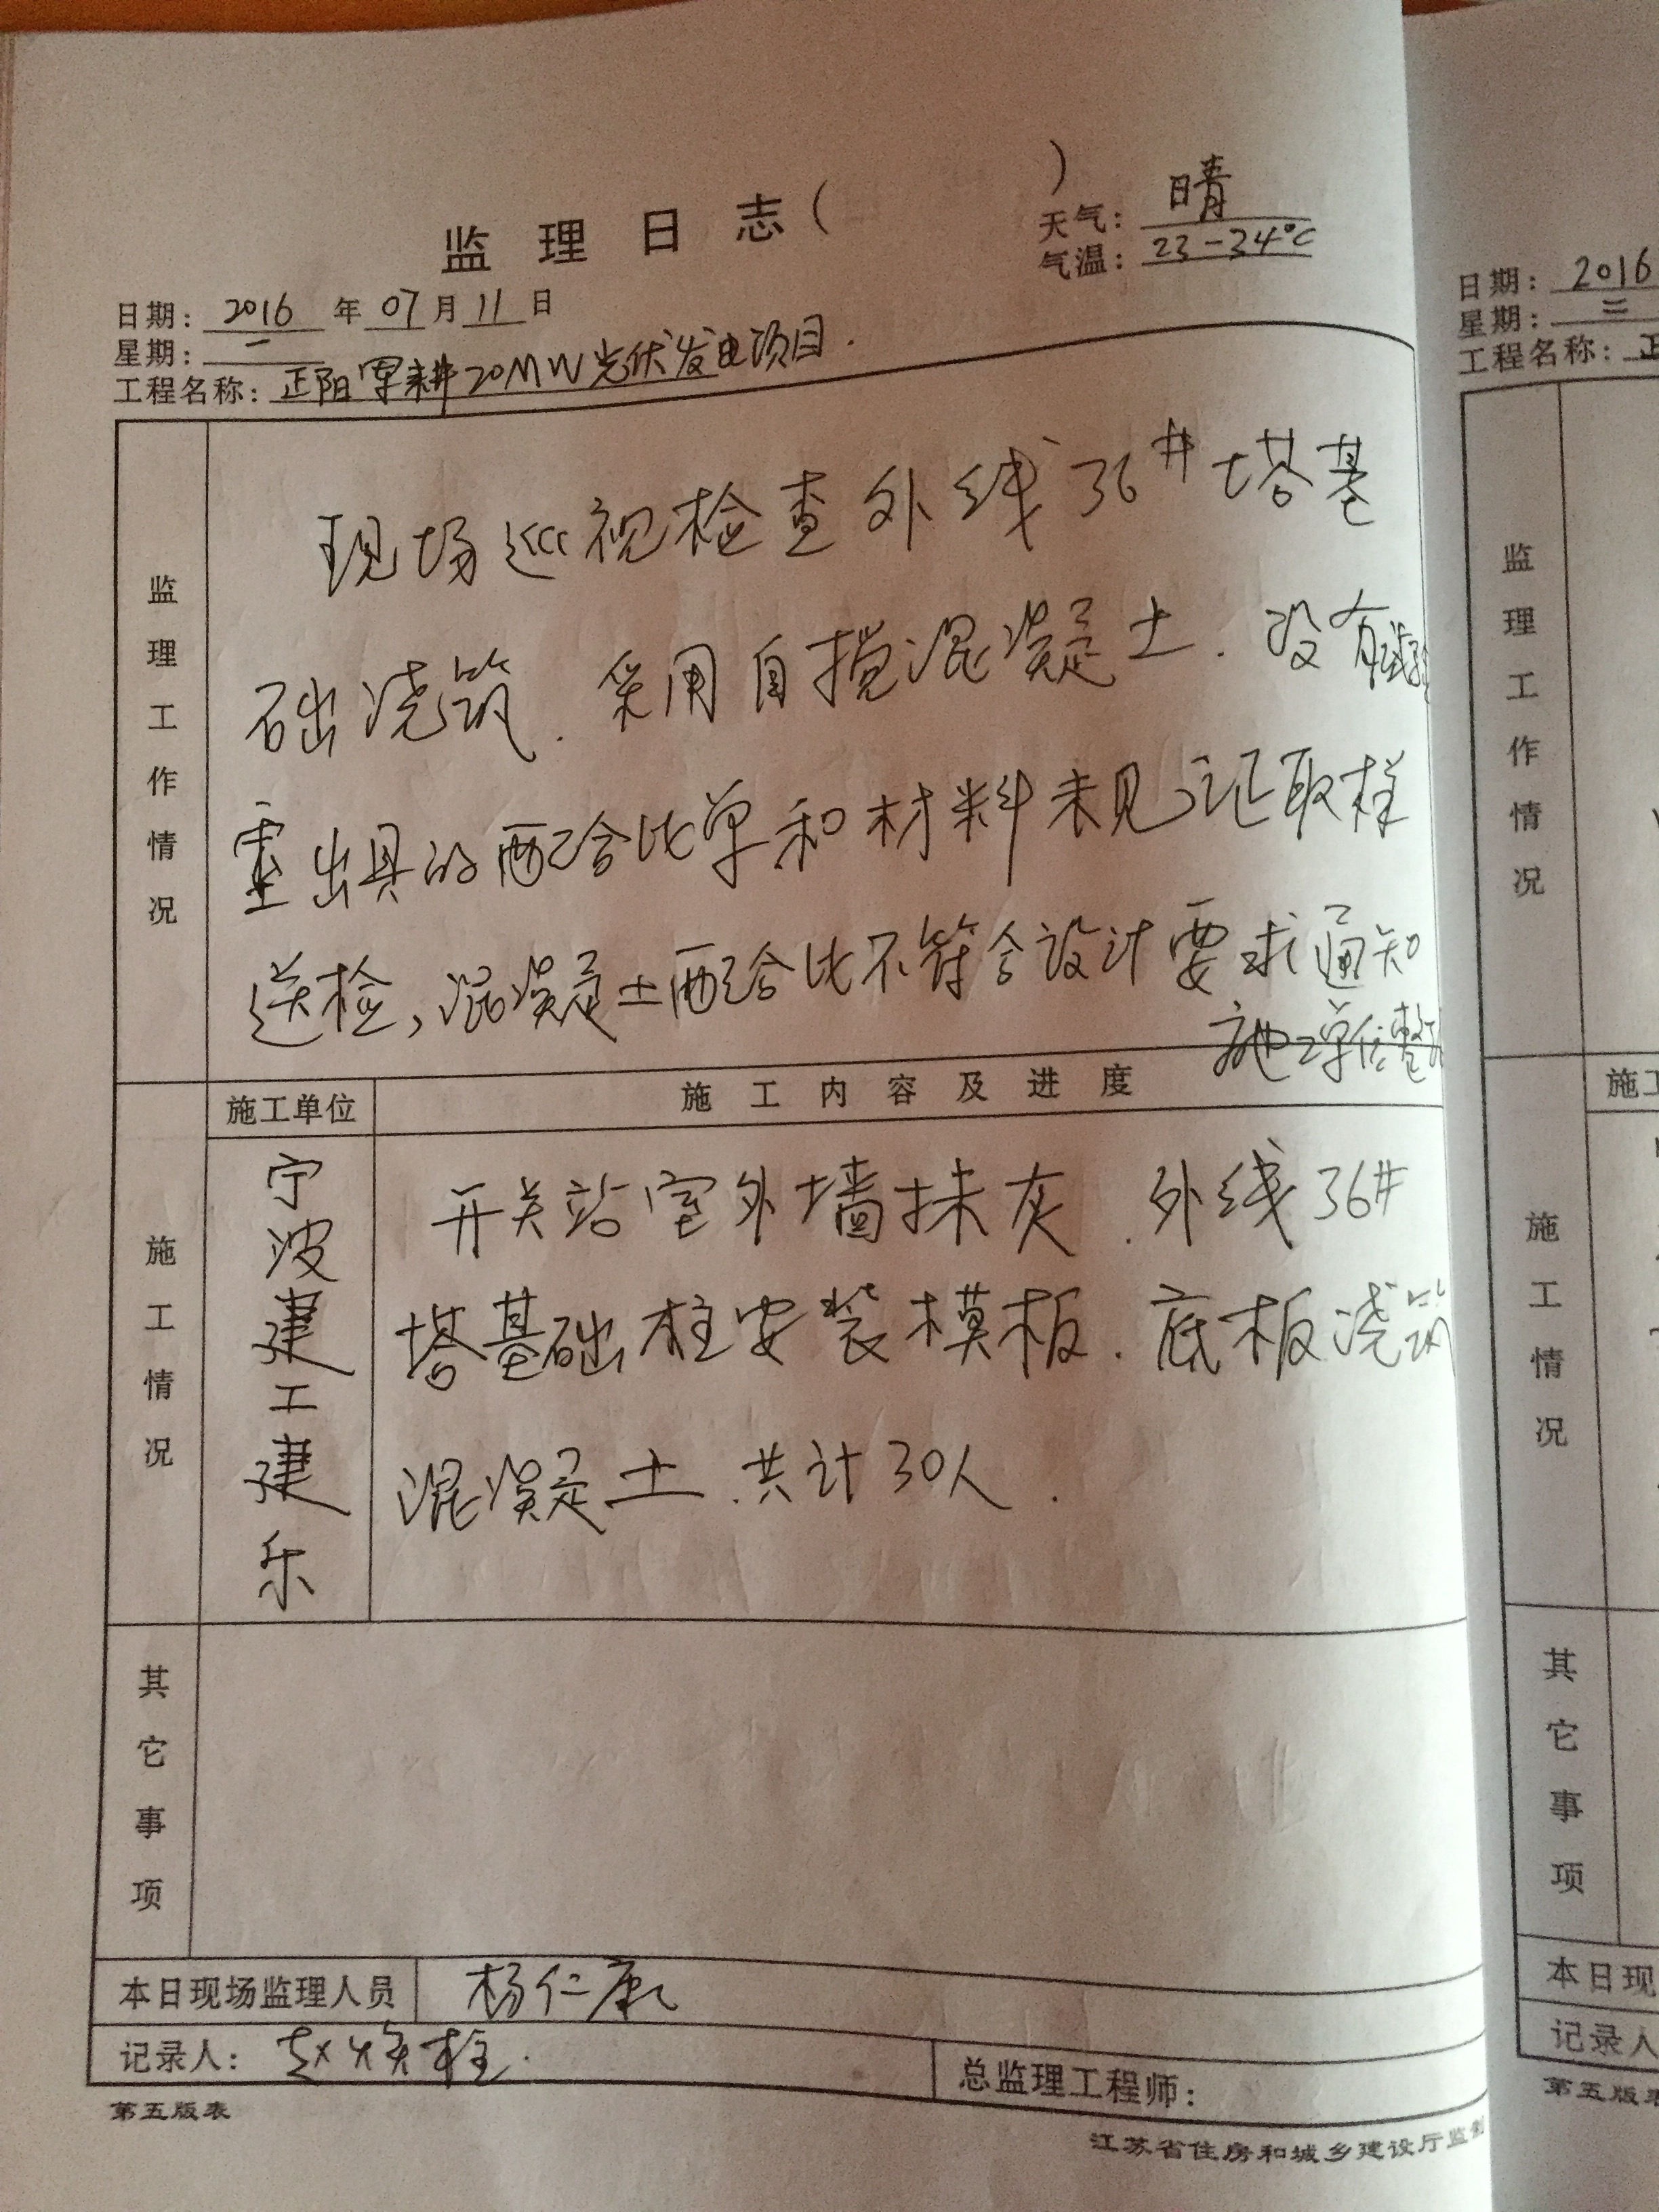 监理日志(                    )
天气：晴
气温：23-34℃
日期：2016年07月11日
星期：一
工程名称：正阳军耕20MW光伏发电项目.
监理工作情况
现场巡视检查外线36#塔基
础浇筑.采用自搅混凝土.没有试验
室出具的配合比单和材料未见证取样
送检,混凝土配合比不符合设计要求通知
施工单位整
施工单位
施工内容及进度
施工情况
宁波建工建乐
开关站室外墙抹灰.外线36#
塔基础柱安装模板.底板浇筑
混凝土.共计30人.
其它事项
本日现场监理人员 杨仁康
记录人：赵焕柱.
总监理工程师：
第五版表
江苏省住房和城乡建设厅监制
日期：2016
星期：二
工程名称：正
监理工作情况
施工
施工情况
其它事项
本日现
记录人
第五版表